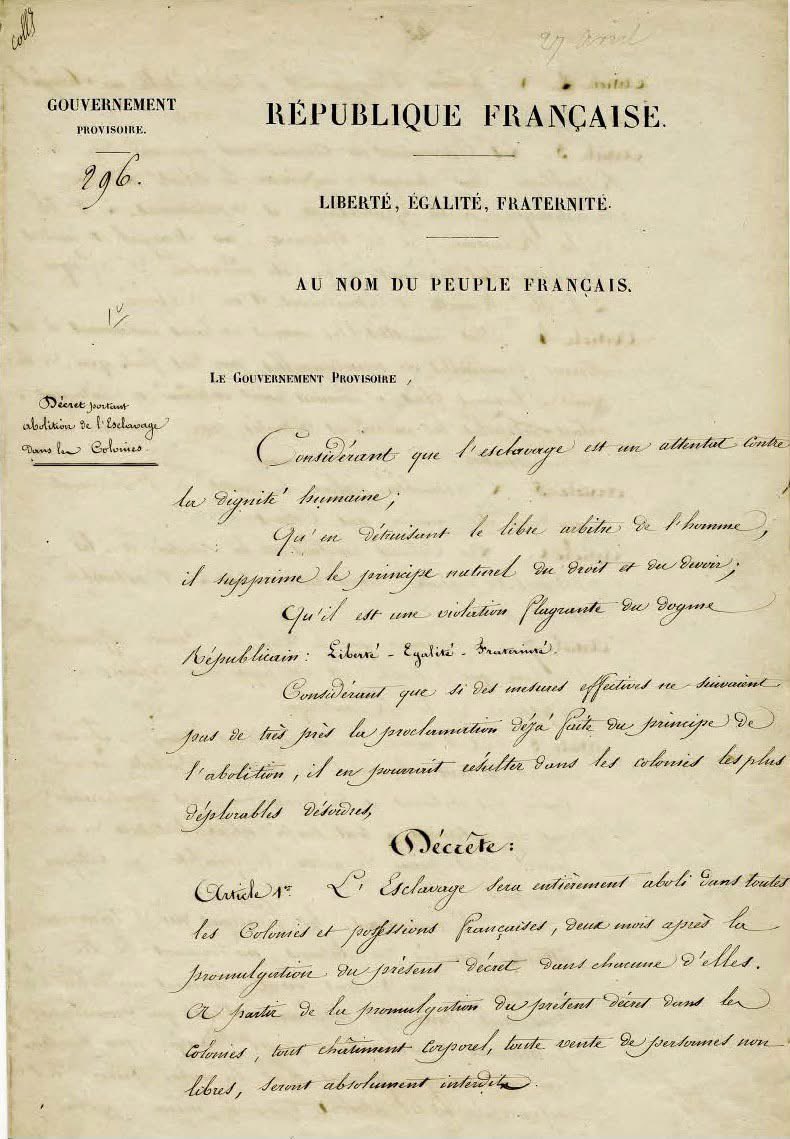 colls
27 avril
GOUVERNEMENT
PROVISOIRE.
296.
RÉPUBLIQUE FRANÇAISE.
LIBERTÉ, ÉGALITÉ, FRATERNITÉ.
AU NOM DU PEUPLE FRANÇAIS.
LE GOUVERNEMENT PROVISOIRE,
Décret portant
abolition de l'Esclavage
dans les Colonies.
Considérant que l'esclavage est un attentat contre
la dignité humaine;
Qu'en détruisant le libre arbitre de l'homme,
il supprime le principe naturel du droit et du devoir;
Qu'il est une violation flagrante du dogme
Républicain: Liberté - Egalité - Fraternité.
Considérant que si des mesures effectives ne suivaient
pas de très près la proclamation déjà faite du principe de
l'abolition, il en pourrait résulter dans les colonies les plus
déplorables désordres,
Décrète:
Article 1er. L'Esclavage sera entièrement aboli dans toutes
les Colonies et possessions françaises, deux mois après la
promulgation du présent décret dans chacune d'elles.
A partir de la promulgation du présent décret dans les
colonies, tout châtiment corporel, toute vente de personnes non
libres, seront absolument interdits.